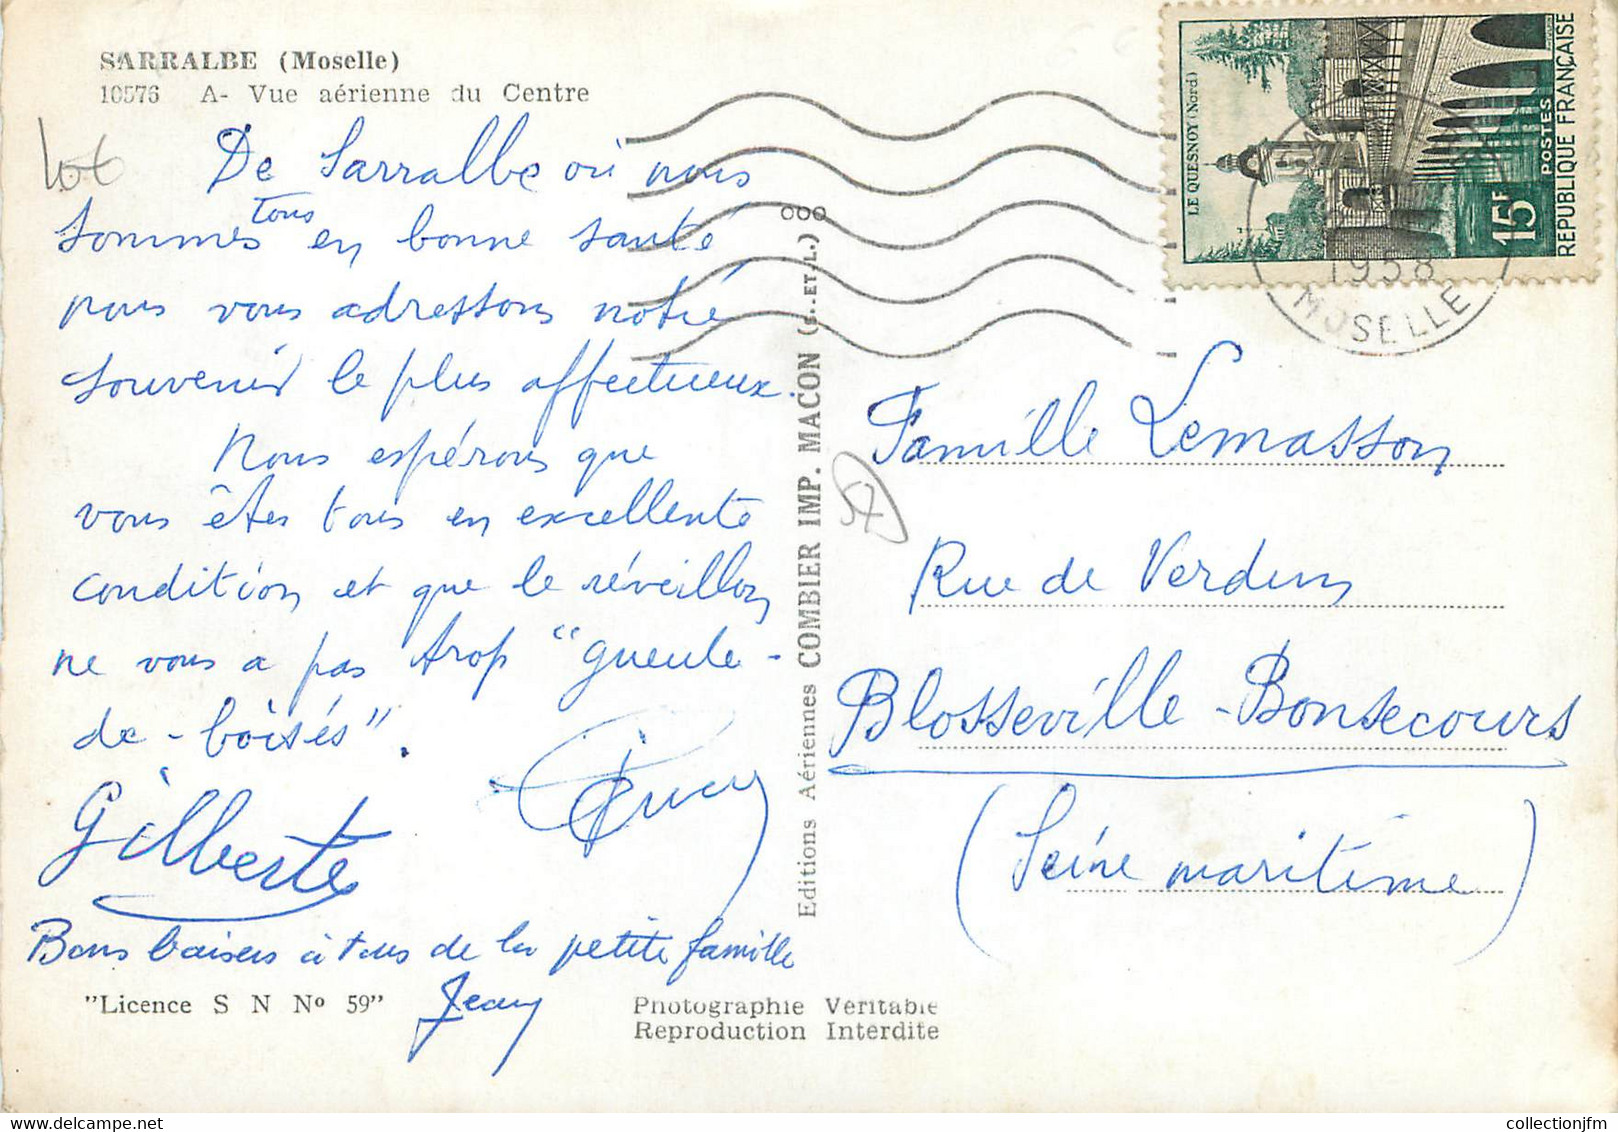 SARRALBE (Moselle)
10576 A- Vue aérienne du Centre
lot
De Sarralbe où nous
sommes tous en bonne santé
nous vous adressons notre
souvenir le plus affectueux.
Nous espérons que
vous êtes tous en excellente
condition et que le réveillon
ne vous a pas trop "gueule-
de-boisés".
Gilberte
Bons baisers à tous de la petite famille
Jean
"Licence S N No 59"
Photographie Véritable
Reproduction Interdite
Editions Aériennes COMBIER IMP. MACON (S.-ET-L.) 000
57
LE QUESNOY (Nord)
15F
POSTES
REPUBLIQUE FRANÇAISE
1958
MOSELLE
Famille Lemasson
Rue de Verdun
Blosseville-Bonsecours
(Seine maritime)
www.collectionjfm.com